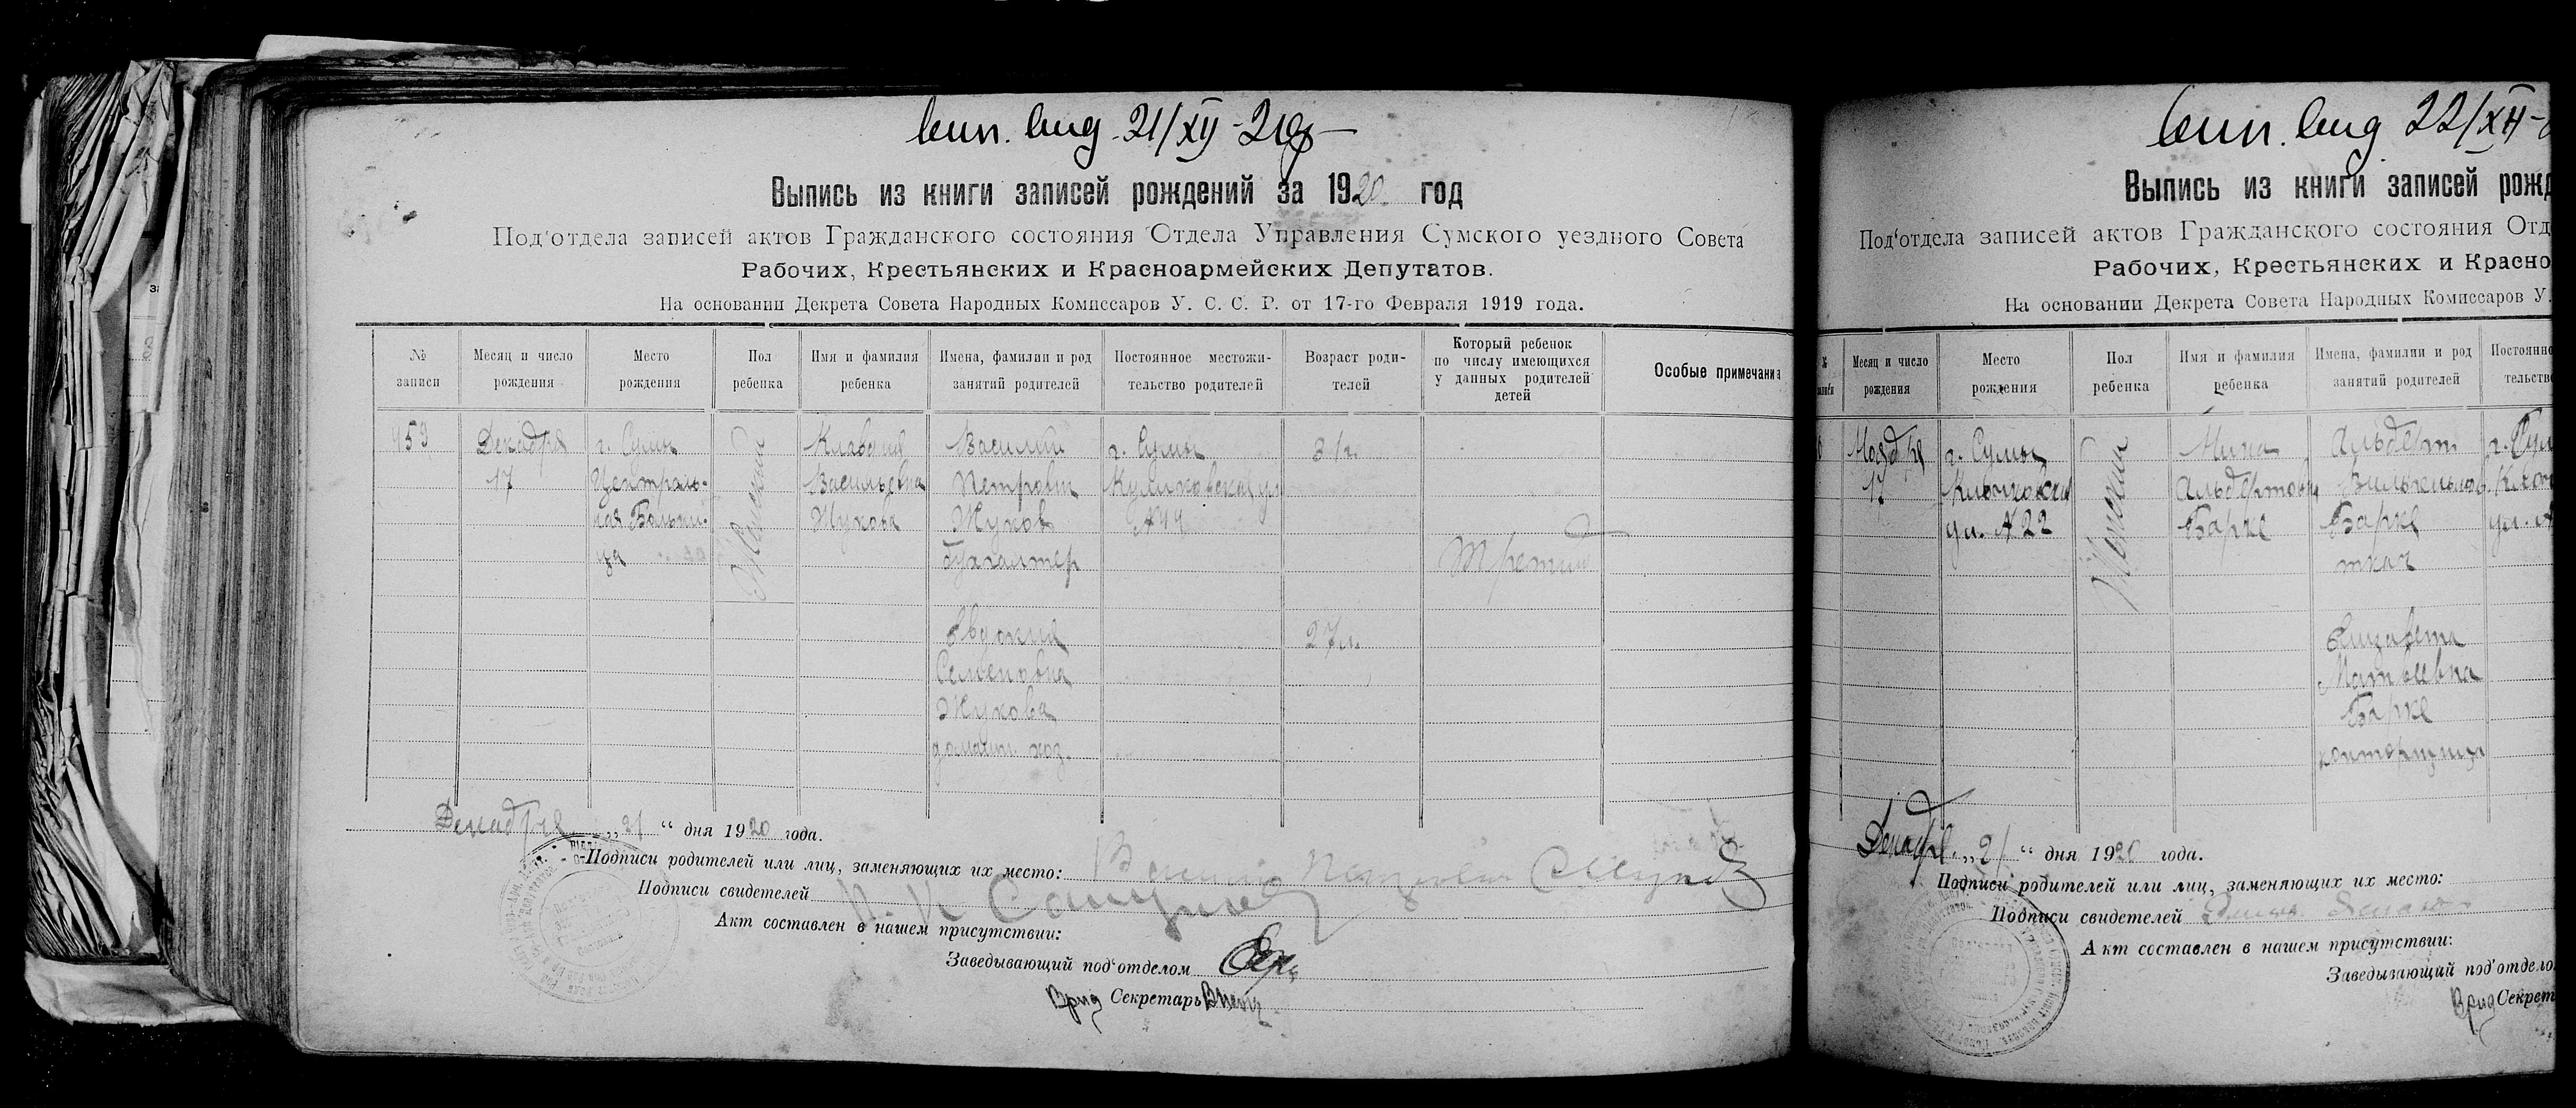 21/XII-20
Выпись из книги записей рождений за 1920 год
Под‘отдела записей актов Гражданского состояния Отдела Управления Сумского уездного Совета
Рабочих, Крестьянских и Красноармейских Депутатов.
На основании Декрета Совета Народных Комиссаров У. С. С. Р. от 17-го Февраля 1919 года.
№ записи
Месяц и число рождения
Место рождения
Пол ребенка
Имя и фамилия ребенка
Имена, фамилии и род занятий родителей
Постоянное местожи-
тельство родителей
Возраст роди-
телей
Который ребенок
по числу имеющихся
у данных родителей
детей
Особые примечания
959
Декабря
17
г. Сумы
Централь-
ная Больни-
ца
Женский
Клавдия
Васильевна
Жукова
Василий
Петрович
Жуков
бухгалтер
г. Сумы
Куликовская ул
31г.
Третий
Евдокия
Семеновна
Жукова
домашн. хоз.
27л.
Декабря „21“ дня 1920 года.
Подписи родителей или лиц, заменяющих их место: Василий Петрович Жуков
Подписи свидетелей
Акт составлен в нашем присутствии:
Заведывающий под‘отделом
Врид Секретарь
22/XII-
Выпись из книги записей рожд
Под‘отдела записей актов Гражданского состояния Отд
Рабочих, Крестьянских и Красно
На основании Декрета Совета Народных Комиссаров У.
№
Месяц и число рождения
Место рождения
Пол ребенка
Имя и фамилия ребенка
Имена, фамилии и род занятий родителей
Постоянно
тельство
17
г. Сумы
ул. № 22
Женский
Альбертовна
Барке
Альберт
Барке
ткач
г. Сум
ул. №
Елизавета
Матвеевна
Барке
конторщица
Декабря „21“ дня 1920 года.
Подписи родителей или лиц, заменяющих их место:
Подписи свидетелей
Акт составлен в нашем присутствии:
Заведывающий под‘отдело
Врид Секрет